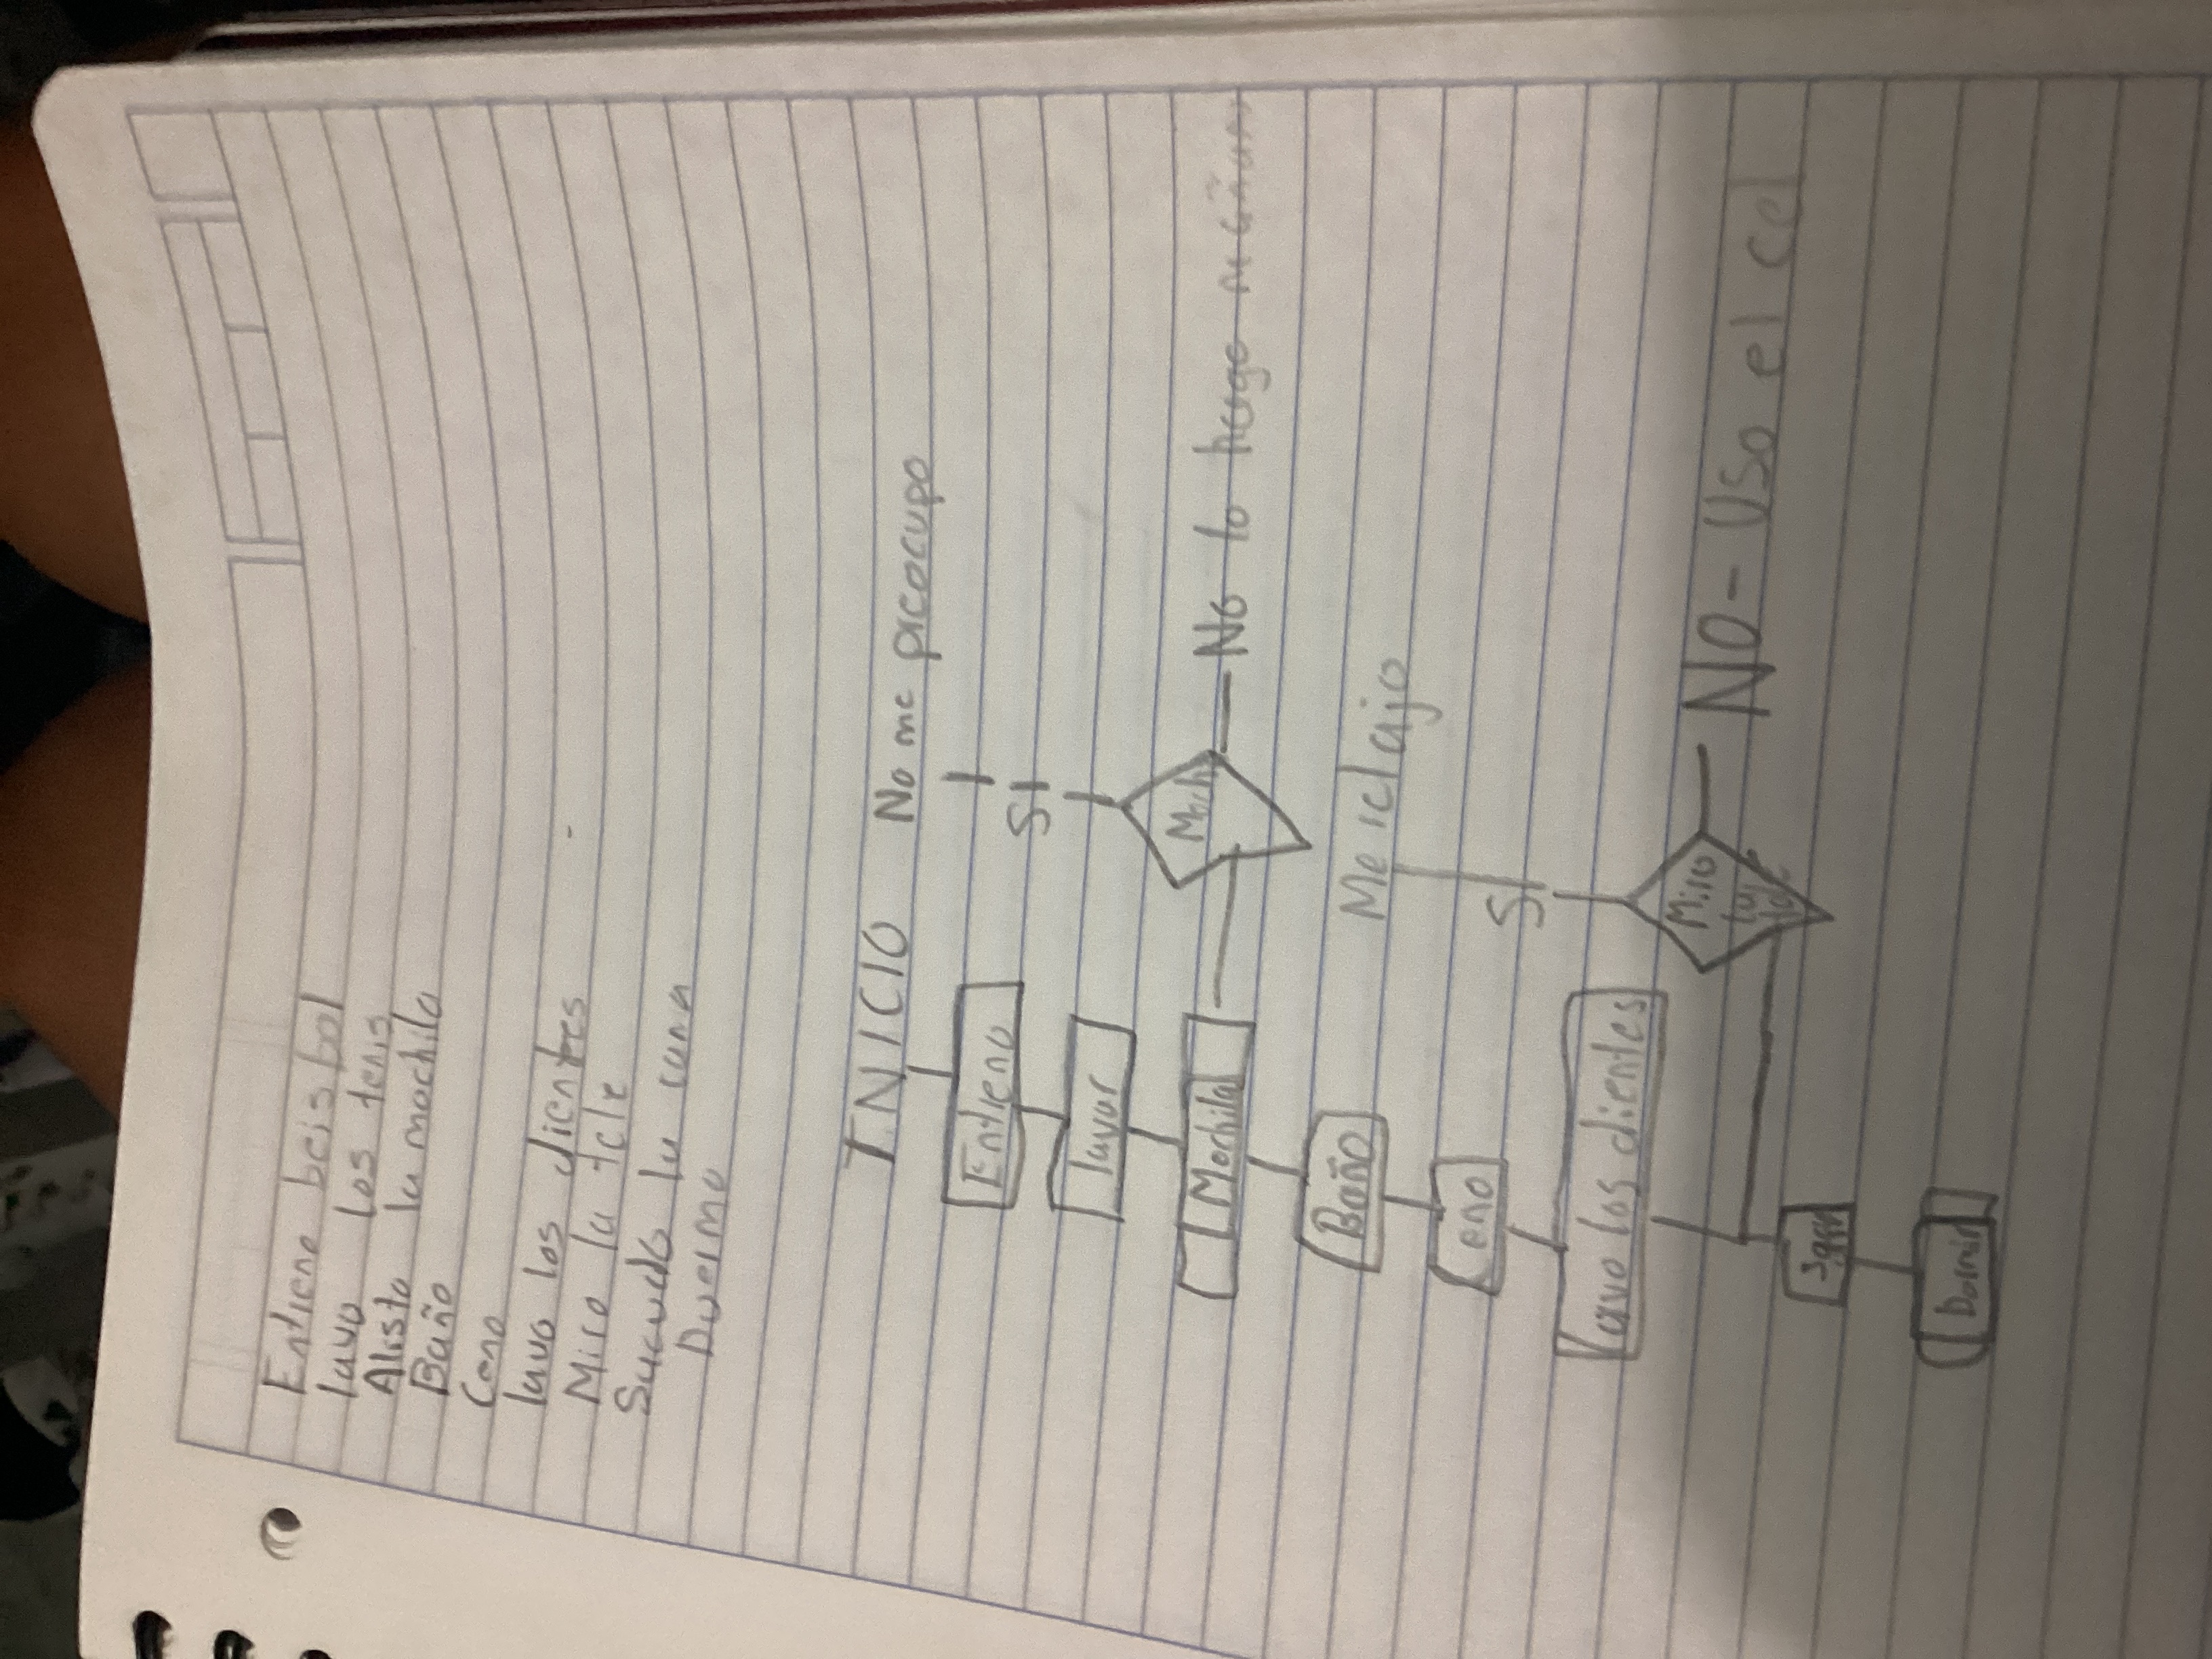 Entreno beisbol
lavo los tenis
Alisto la mochila
Baño
Ceno
lavo los dientes
Miro la tele
Sacudo la cama
Duermo
INICIO No me preocupo
Entreno
SI
lavar
Moch
Mochila
No lo hago
Baño
Me relajo
Ceno
SI
Lavo los dientes
Miro la tele
NO - Uso el cel
Dormir